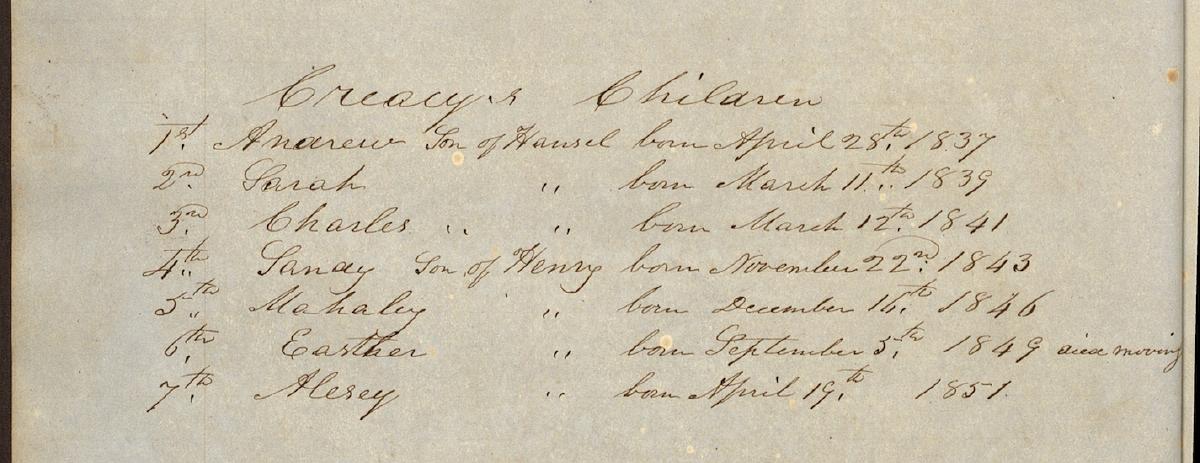 Creacy's Children
1st. Andrew Son of Hansel born April 28th. 1837
2nd. Sarah ,, born March 11th. 1839
3rd. Charles ,, ,, born March 12th. 1841
4th. Sandy Son of Henry born November 22nd. 1843
5th. Mahaley ,, born December 16th. 1846
6th. Easther ,, born September 5th. 1849 died moving
7th. Alesey ,, born April 19th. 1851